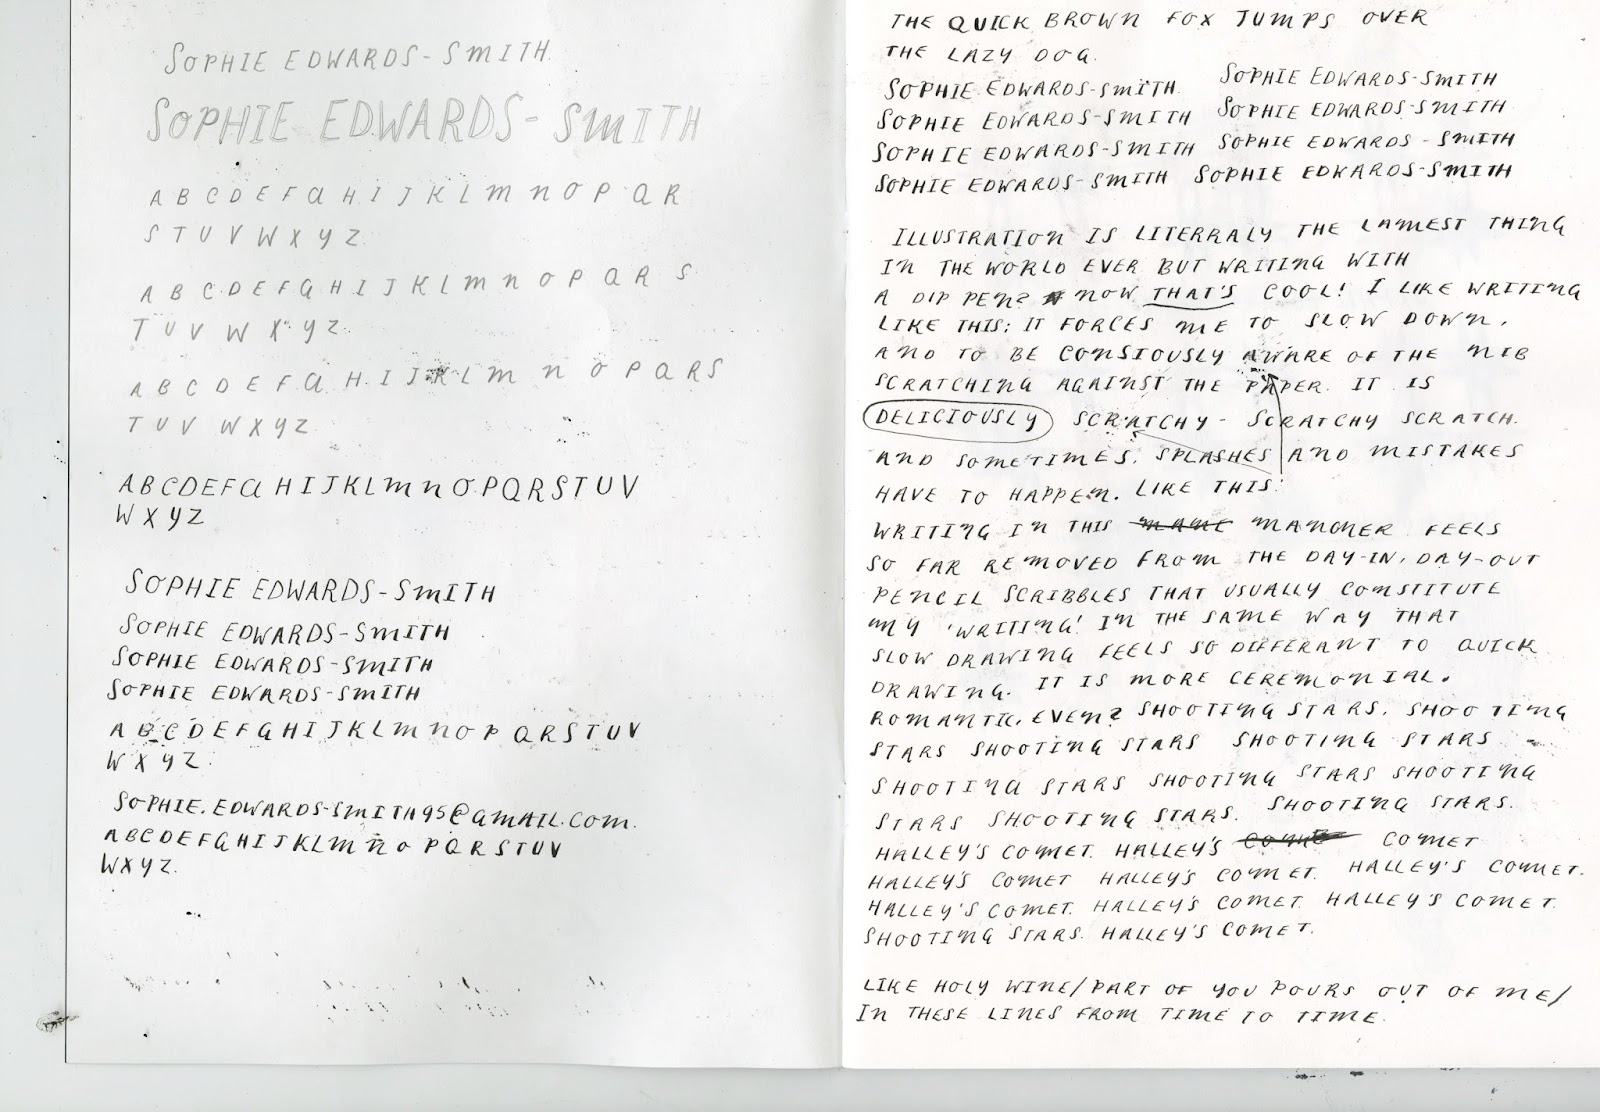 SOPHIE EDWARDS-SMITH
SOPHIE EDWARDS-SMITH
A B C D E F G H I J K L M N O P Q R
S T U V W X Y Z
A B C D E F G H I J K L M N O P Q R S
T U V W X Y Z
A B C D E F G H I J K L M N O P Q R S
T U V W X Y Z
A B C D E F G H I J K L M N O P Q R S T U V
W X Y Z
SOPHIE EDWARDS-SMITH
SOPHIE EDWARDS-SMITH
SOPHIE EDWARDS-SMITH
SOPHIE EDWARDS-SMITH
A B C D E F G H I J K L M N O P Q R S T U V
W X Y Z.
SOPHIE.EDWARDS-SMITH95@GMAIL.COM.
A B C D E F G H I J K L M N O P Q R S T U V
W X Y Z.
THE QUICK BROWN FOX JUMPS OVER
THE LAZY DOG.
SOPHIE EDWARDS-SMITH. SOPHIE EDWARDS-SMITH
SOPHIE EDWARDS-SMITH SOPHIE EDWARDS-SMITH
SOPHIE EDWARDS-SMITH SOPHIE EDWARDS-SMITH
SOPHIE EDWARDS-SMITH SOPHIE EDWARDS-SMITH
ILLUSTRATION IS LITERRALY THE LAMEST THING
IN THE WORLD EVER BUT WRITING WITH
A DIP PEN? NOW THAT'S COOL! I LIKE WRITING
LIKE THIS: IT FORCES ME TO SLOW DOWN.
AND TO BE CONSIOUSLY AWARE OF THE NIB
SCRATCHING AGAINST THE PAPER. IT IS
DELICIOUSLY SCRATCHY - SCRATCHY SCRATCH.
AND SOMETIMES. SPLASHES AND MISTAKES
HAVE TO HAPPEN. LIKE THIS!
WRITING IN THIS MANNER FEELS
SO FAR REMOVED FROM THE DAY-IN, DAY-OUT
PENCIL SCRIBBLES THAT USUALLY CONSTITUTE
MY 'WRITING' IN THE SAME WAY THAT
SLOW DRAWING FEELS SO DIFFERANT TO QUICK
DRAWING. IT IS MORE CEREMONIAL.
ROMANTIC, EVEN? SHOOTING STARS. SHOOTING
STARS SHOOTING STARS SHOOTING STARS
SHOOTING STARS SHOOTING STARS SHOOTING
STARS SHOOTING STARS. SHOOTING STARS.
HALLEY'S COMET. HALLEY'S COMET
HALLEY'S COMET HALLEY'S COMET. HALLEY'S COMET.
HALLEY'S COMET. HALLEY'S COMET. HALLEY'S COMET.
SHOOTING STARS. HALLEY'S COMET.
LIKE HOLY WINE/PART OF YOU POURS OUT OF ME/
IN THESE LINES FROM TIME TO TIME.